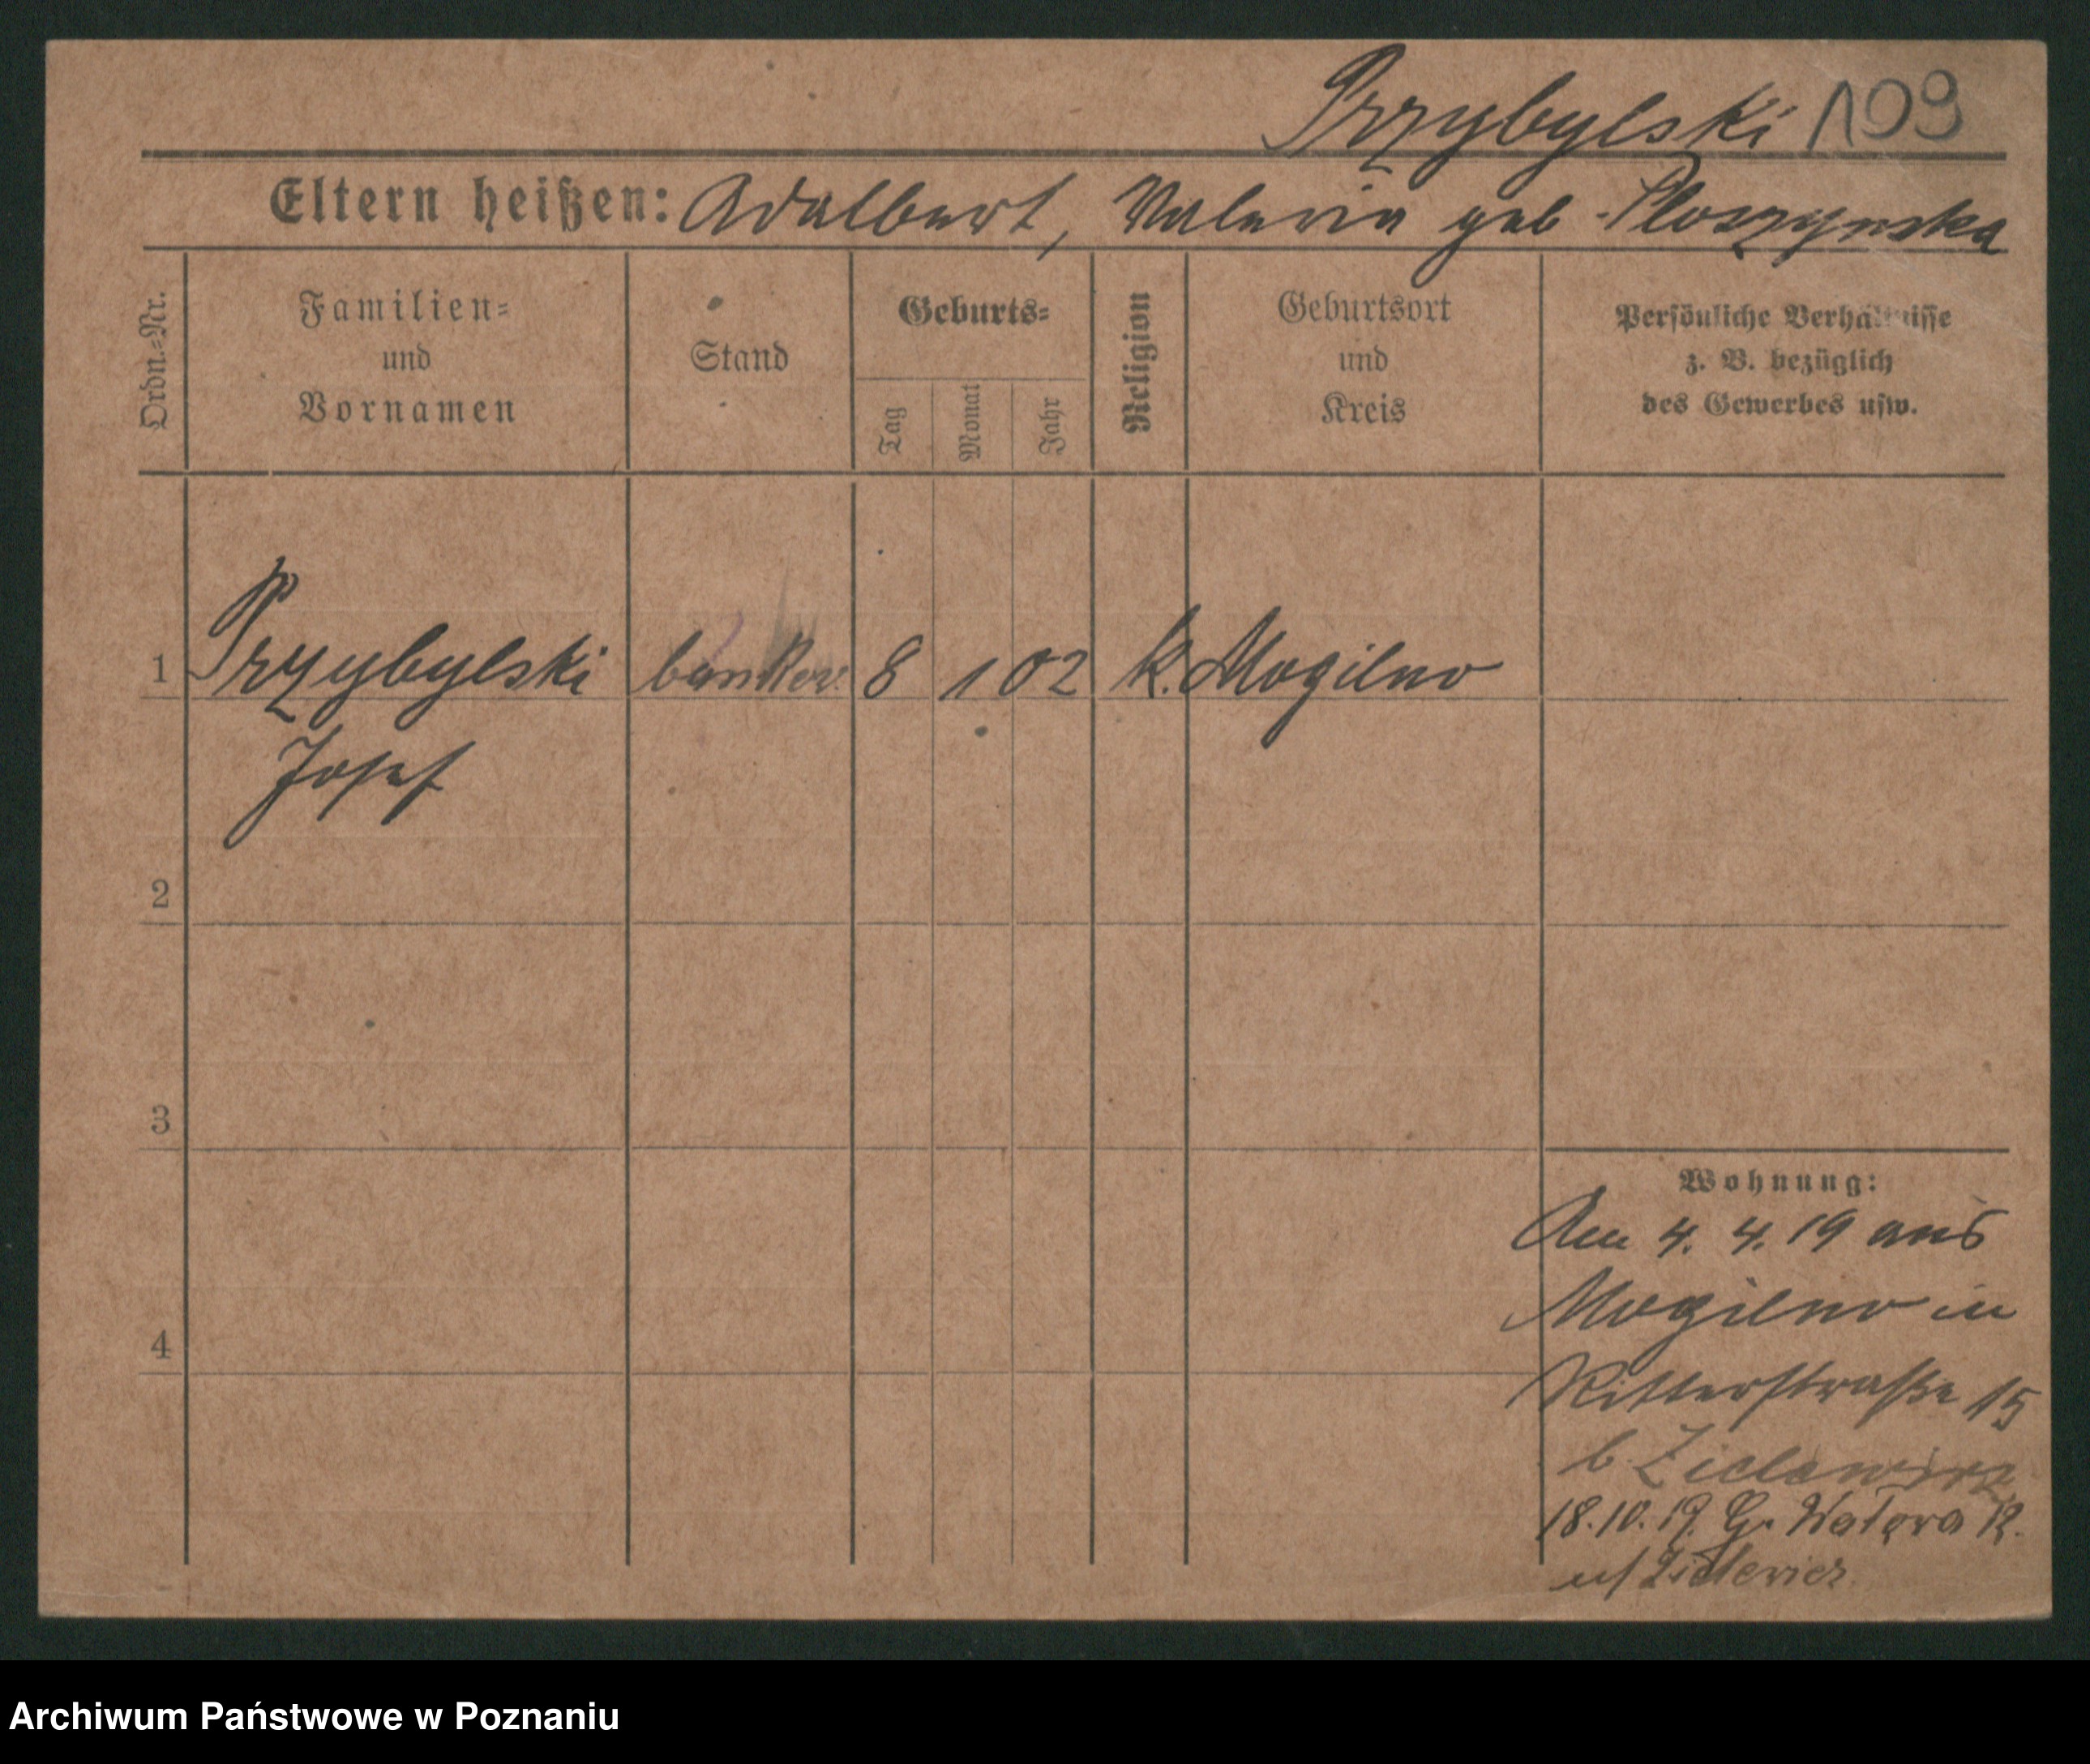 Przybylski 109
Eltern heißen: Adalbert, Valeria geb. Ploszynska
Ordn.=Nr.
Familien=
und
Vornamen
Stand
Geburts=
Tag
Monat
Jahr
Religion
Geburtsort
und
Kreis
Persönliche Verhältnisse
z. B. bezüglich
des Gewerbes usw.
1 Przybylski 8 1 02 k. Mogilno
Josef
2
3
4
Wohnung:
Am 4. 4. 19 aus
Mogilno in
Ritterstraße 15
b.
18.10.19. 12.
Archiwum Państwowe w Poznaniu